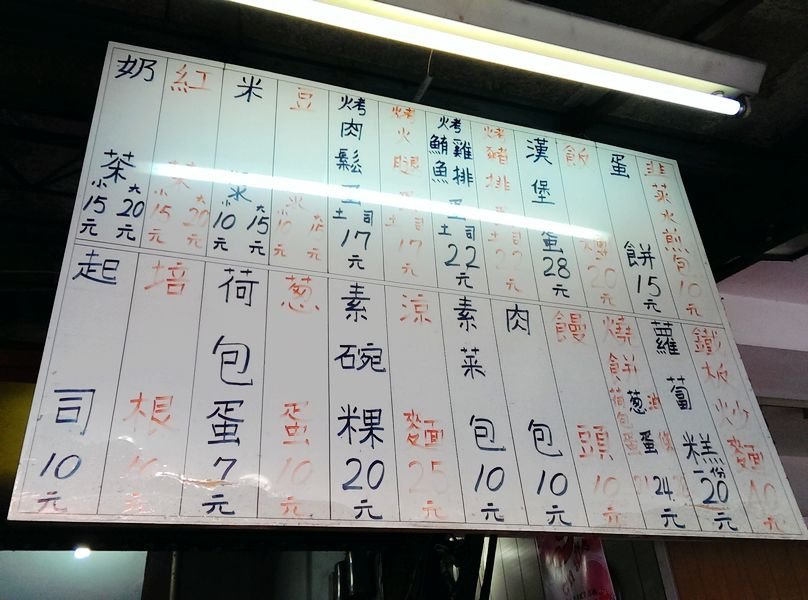 韭菜水煎包10元
蛋餅15元
飯糰20元
漢堡蛋28元
烤豬排蛋吐司22元
烤雞排 鮪魚 蛋吐司22元
烤火腿蛋吐司17元
烤肉鬆蛋吐司17元
豆漿 大15元 小10元
米漿 大15元 小10元
紅茶 大20元 小15元
奶茶 大20元 小15元
鐵板炒麵40元
蘿蔔糕一份20元
燒餅 荷包蛋 葱蛋 油條 24元
饅頭10元
肉包10元
素菜包10元
涼麵25元
素碗粿20元
葱蛋10元
荷包蛋7元
培根10元
起司10元